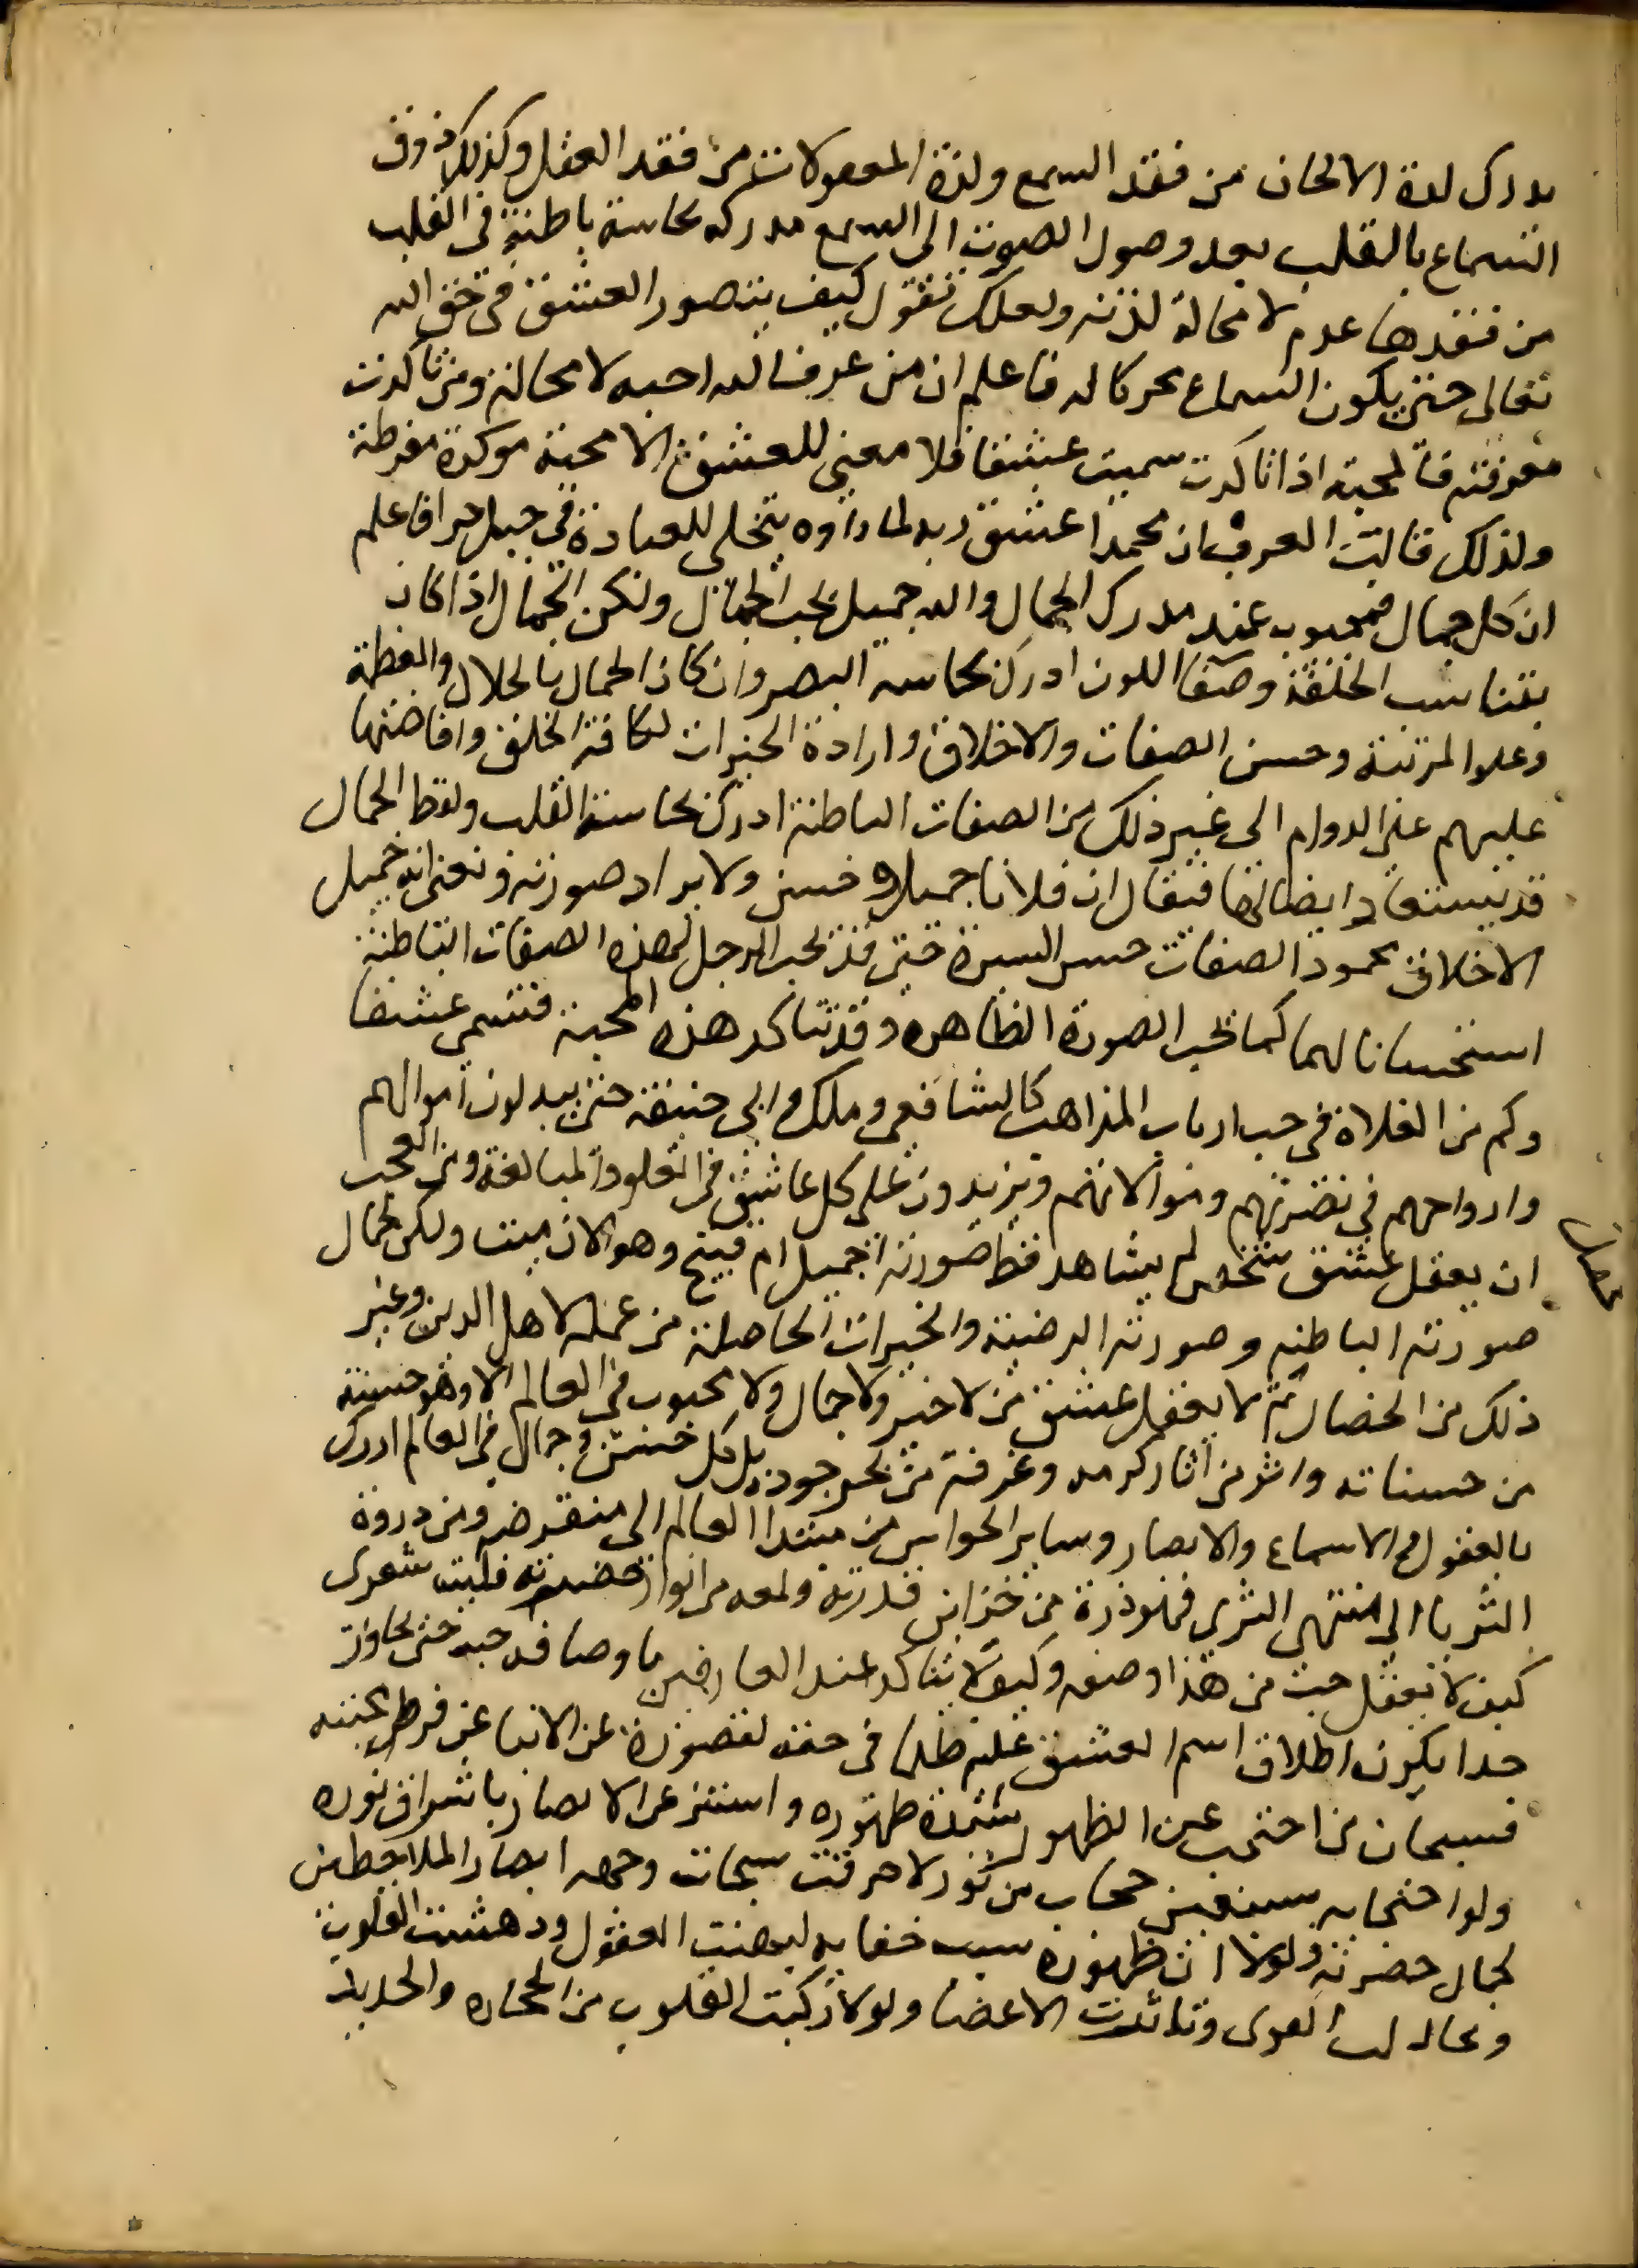 يدرك لذة الالحان من فقد السمع ولذة المعقولات من فقد العقل وكذلك ذوق
السماع بالقلب بعد وصول الصوت الى السمع مدركه بحاسة باطنة في القلب
من فقدها عدم لا محالة لذته ولعلك تقول كيف يتصور العشق في حق الله
تعالى حتى يكون السماع محركا له فاعلم ان من عرف الله احبه لا محالة ومن تاكدت
معرفته فالمحبة اذا تاكدت سميت عشقا فلا معنى للعشق الا محبة موكدة مفرطة
ولذلك قالت العرب ان محمدا عشق ربه لما راوه يتخلى للعبادة في جبل حرا فاعلم
ان كل جمال فمحبوب عند مدرك الجمال والله جميل يحب الجمال ولكن الجمال اذا كان
بتناسب الخلقة وصفا اللون ادرك بحاسة البصر وان كان الجمال بالجلال والعظمة
وعلو المرتبة وحسن الصفات والاخلاق وارادة الخيرات لكافة الخلق وافاضتها
عليهم على الدوام الى غير ذلك من الصفات الباطنة ادرك بحاسة القلب ولفظ الجمال
قد يستعار ايضا لها فيقال ان فلانا جميل وحسن ولا يراد صورته ونعنى انه جميل
الاخلاق محمود الصفات حسن السيرة حتى قد يحب الرجل لهذه الصفات الباطنة
استحسانا لها كما تحب الصورة الظاهره وقد تتاكد هذه المحبة فتسمى عشقا
وكم من الغلاة في حب ارباب المذاهب كالشافعي وملك وابي حنيفة حتى يبدلون اموالهم
وارواحهم في نصرتهم وموالاتهم ويزيدون على كل عاشق في الغلو والمبالغة ومن العجب
ان يعقل عشق شخص لم يشاهد قط صورته اجميل ام قبيح وهو الان ميت ولكن لجمال
صورته الباطنه وصورته المرضية والخيرات الحاصلة من عمله لاهل الدين وغير
ذلك من الخصال ثم لا يعقل عشق من لا خير ولا جمال ولا محبوب في العالم الا وهو حسنة
من حسناته واثر من اثار كرمه وغرفة من بحر جوده بل كل حسن وجمال في العالم ادرك
بالعقول والاسماع والابصار وساير الحواس من مبتدا العالم الى منقرضه ومن ذروة
الثريا الى منتهى الثرى فهو ذرة من خزاين قدرته ولمعه من انوار حضرته فليت شعرى
كيف لا يعقل حب من هذا وصفه وكيف لا يتاكد عند العارفين باوصافه حبه حتى يجاوز
حدا يكون اطلاق اسم العشق عليه ظلما في حقه لقصوره عن الانبا عن فرط محبته
فسبحان من احتجب عن الظهور لشدة ظهوره واستتر عن الابصار باشراق نوره
ولولا احتجابه بسبعين حجاب من نور لاحرقت سبحات وجهه ابصار الملاحظين
لجمال حضرته ولولا ان ظهوره سبب خفايه لبهتت العقول ودهشت القلوب
وتخاذلت القوى وتناثرت الاعضا ولو لا ركبت القلوب من الحجارة والحديد